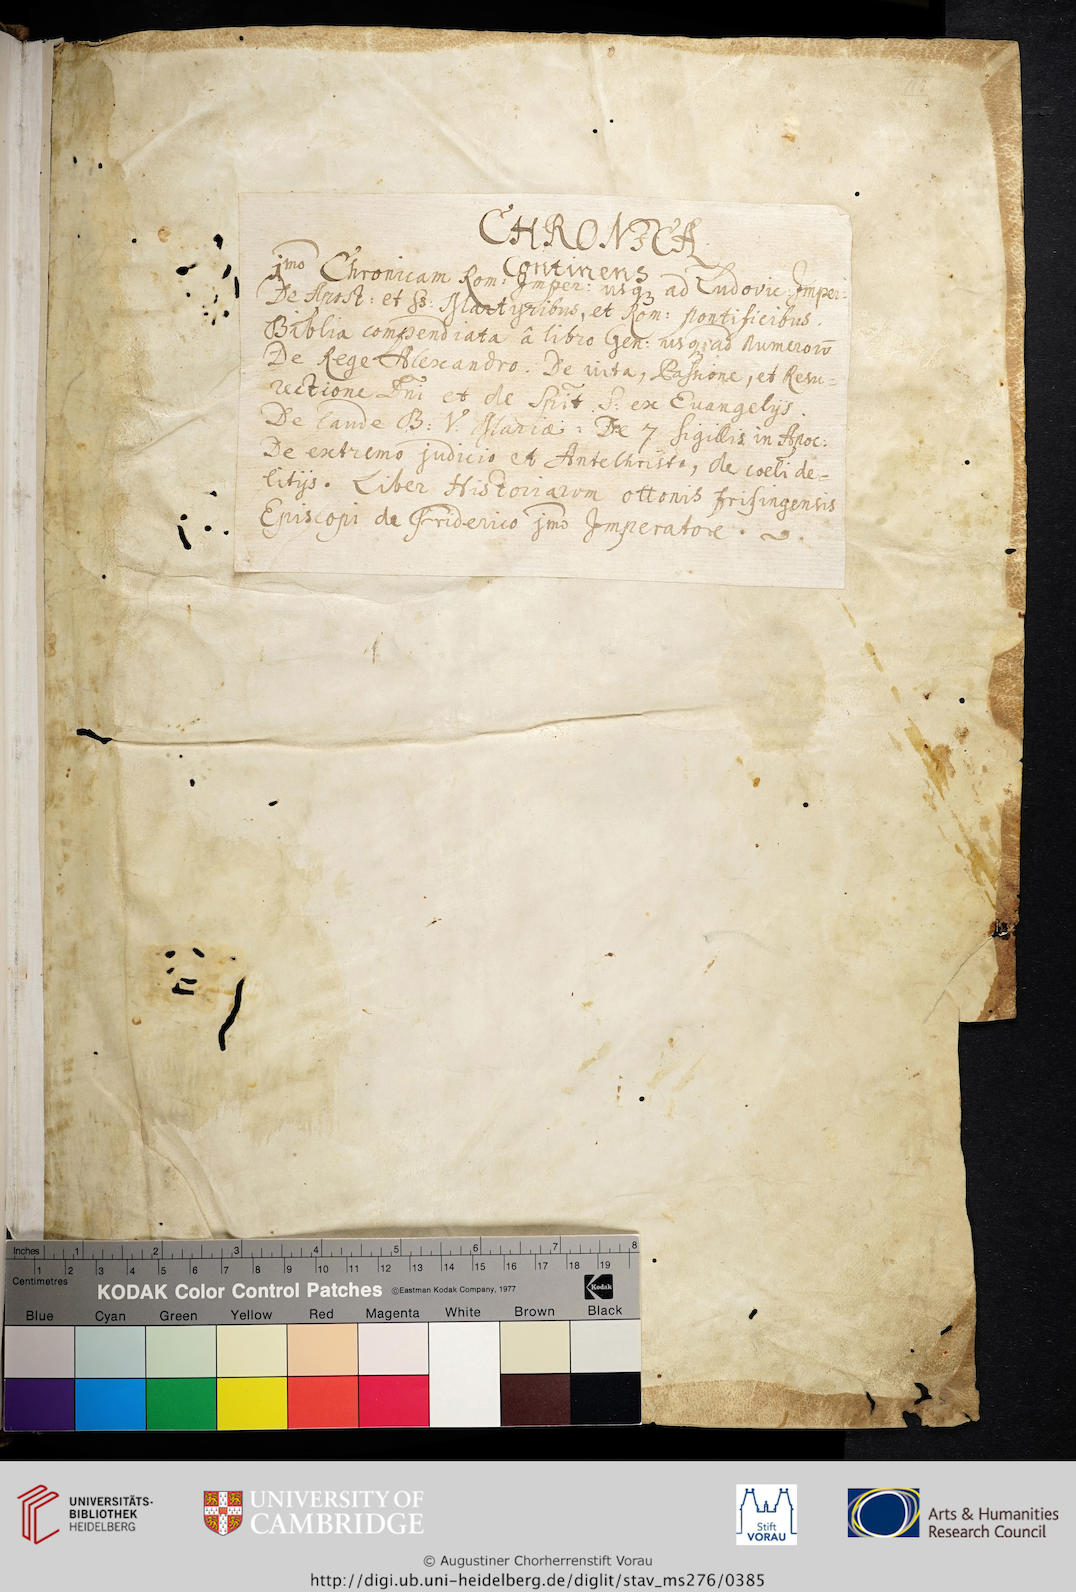 CHRONICA
Continens
jmo Chronicam Rom: Imper: usq3 ad Ludovic: Imper:
De Apost: et SS: Martyribus, et Rom: pontificibus.
Biblia compendiata â libro Gen: usq3 ad Numerorū
De Rege Alexandro. De vita, Passione, et Resu=
rectione Dñi et de Spirit. S: ex Evangelijs.
De Laude B: V: Mariæ: De 7 sigillis in Apoc:
De extremo judicio et Antechristo, de coeli de=
litijs. Liber Historiarum Ottonis frisingensis
Episcopi de Friderico jmo Imperatore.
Inches 1 2 3 4 5 6 7 8
1 2 3 4 5 6 7 8 9 10 11 12 13 14 15 16 17 18 19
Centimetres
KODAK Color Control Patches ©Eastman Kodak Company, 1977 Kodak
Blue Cyan Green Yellow Red Magenta White Brown Black
UNIVERSITÄTS-
BIBLIOTHEK
HEIDELBERG
UNIVERSITY OF
CAMBRIDGE
Stift
VORAU
Arts & Humanities
Research Council
© Augustiner Chorherrenstift Vorau
http://digi.ub.uni-heidelberg.de/diglit/stav_ms276/0385